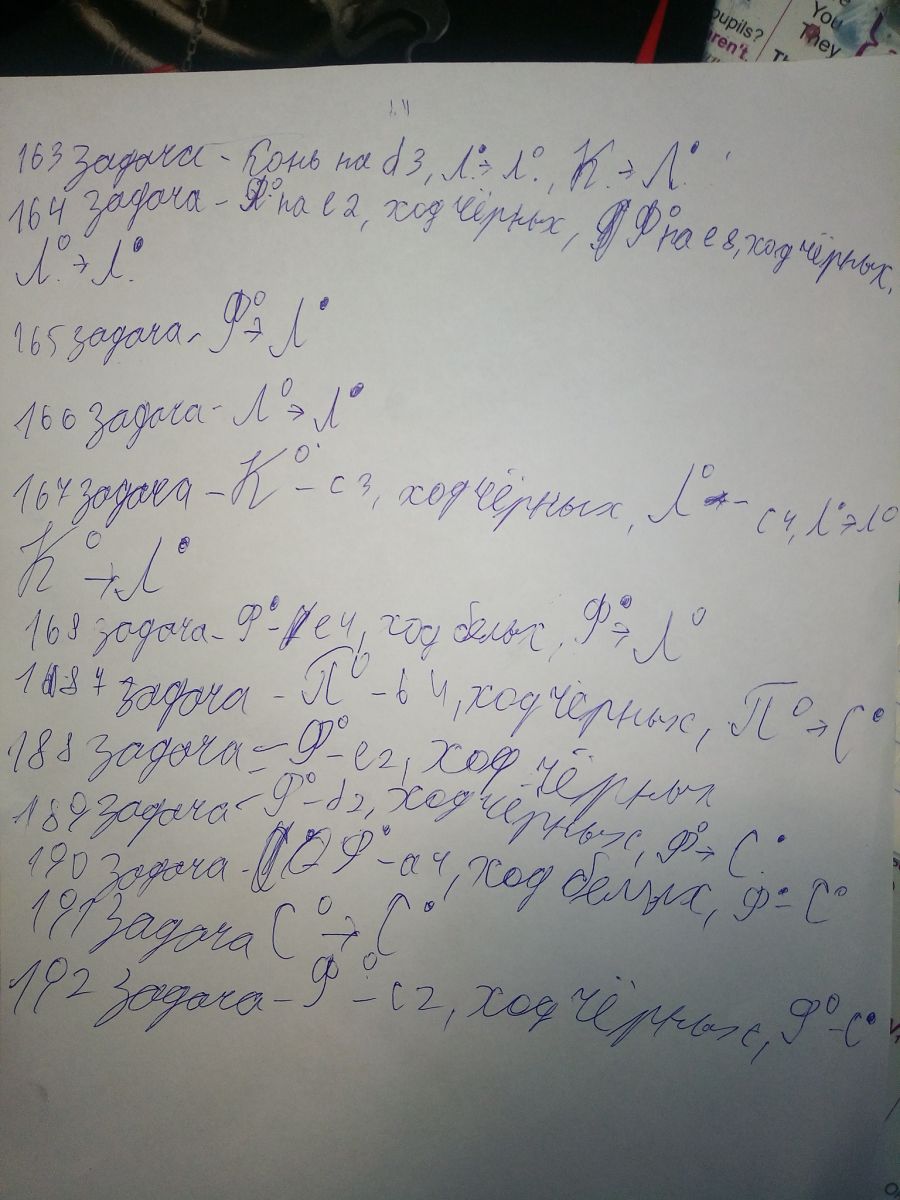 pupils?
aren't.
You
They
163 задача - Конь на d3, Л•→Л°, К→Л•
164 задача - Ф° на e2, ход чёрных, Ф° на e8, ход чёрных,
Л°→Л•
165 задача - Ф°→Л•
166 задача - Л°→Л•
167 задача - К° - c3, ход чёрных, Л° - c4, Л•→Л°
К°→Л•
168 задача - Ф - e4, ход белых, Ф•→Л°
187 задача - П° - b4, ход чёрных, П°→С•
188 задача - Ф° - e2, ход чёрных
189 задача - Ф° - d2, ход чёрных, Ф°→С•
190 задача - Ф• - a4, ход белых, Ф - С°
191 задача С°→С•
192 задача - Ф° - c2, ход чёрных, Ф° - С•